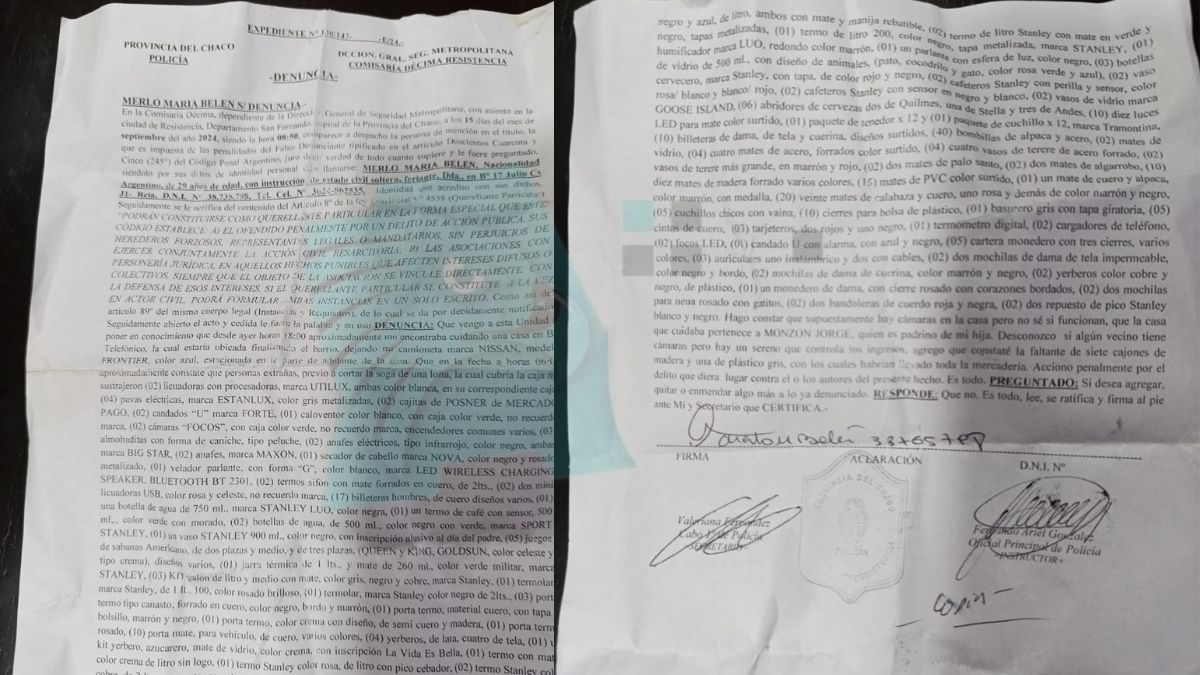 EXPEDIENTE Nº 130/347- -E/24.-
PROVINCIA DEL CHACO
POLICÍA
DCCION. GRAL. SEG. METROPOLITANA
COMISARÍA DÉCIMA RESISTENCIA
-DENUNCIA-
MERLO MARIA BELEN S/ DENUNCIA.-
En la Comisaría Décima, dependiente de la Direcci General de Seguridad Metropolitana, con asiento en la
ciudad de Resistencia, Departamento San Fernando, capital de la Provincia del Chaco, a los 15 días del mes de
septiembre del año 2024, siendo la hora 08:50, comparece a despacho la persona de mención en el título, la
que es impuesta de las penalidades del Falso Denunciante tipificado en el artículo Doscientos Cuarenta y
Cinco (245º) del Código Penal Argentino, juro decir verdad de todo cuanto supiere y le fuere preguntado,
siéndolo por sus datos de identidad personal dijo llamarse: MERLO MARIA BELEN, Nacionalidad
Argentino, de 29 años de edad, con instrucción, de estado civil soltera, feriante, Dda., en Bº 17 Julio Cs
J1- Rcia, D.N.I. Nº 38.735.798, Tel. Cel. Nº 3624-862835, Identidad que acredito con sus dichos.
Seguidamente se le notifica del contenido del Artículo 8º de la ley provincial - 4538 (Querellante Particular)
"PODRÁN CONSTITUIRSE COMO QUERELLANTE PARTICULAR EN LA FORMA ESPECIAL QUE ESTE
CÓDIGO ESTABLECE: A) EL OFENDIDO PENALMENTE POR UN DELITO DE ACCIÓN PUBLICA, SUS
HEREDEROS FORZOSOS, REPRESENTANTES LEGALES O MANDATARIOS, SIN PERJUICIOS DE
EJERCER CONJUNTAMENTE LA ACCIÓN CIVIL RESARCITORIA. B) LAS ASOCIACIONES CON
PERSONERÍA JURÍDICA, EN AQUELLOS HECHOS PUNIBLES QUE AFECTEN INTERESES DIFUSOS O
COLECTIVOS, SIEMPRE QUE EL OBJETO DE LA ASOCIACIÓN SE VINCULE DIRECTAMENTE CON
LA DEFENSA DE ESOS INTERESES. SI EL QUERELLANTE PARTICULAR SE CONSTITUYE A LA VEZ
EN ACTOR CIVIL, PODRÁ FORMULAR AMBAS INSTANCIAS EN UN SOLO ESCRITO. Como así del
artículo 89º del mismo cuerpo legal (Instancias y Requisitos), de lo cual se da por debidamente notificado
Seguidamente abierto el acto y cedida le fuere la palabra y en uso DENUNCIA: Que vengo a esta Unidad
poner en conocimiento que desde ayer horas 18:00 aproximadamente me encontraba cuidando una casa en B
Telefónico, la cual estaría ubicada finalizando el barrio, dejando mi camioneta marca NISSAN, model
FRONTIER, color azul, estacionada en la parte de adelante de la casa. Que en la fecha a horas 06:0
aproximadamente constate que personas extrañas, previo a cortar la soga de una lona, la cual cubría la caja m
sustrajeron (02) licuadoras con procesadoras, marca UTILUX, ambas color blanca, en su correspondiente caja
(04) pavas eléctricas, marca ESTANLUX, color gris metalizadas, (02) cajitas de POSNER de MERCADO
PAGO, (02) candados "U" marca FORTE, (01) caloventor color blanco, con caja color verde, no recuerdo
marca, (02) cámaras "FOCOS", con caja color verde, no recuerdo marca, encendedores comunes varios, (03
almohaditas con forma de caniche, tipo peluche, (02) anafes eléctricos, tipo infrarrojo, color negro, ambas
marca BIG STAR, (02) anafes, marca MAXON, (01) secador de cabello marca NOVA, color negro y rosado
metalizado, (01) velador parlante, con forma "G", color blanco, marca LED WIRELESS CHARGING
SPEAKER, BLUETOOTH BT 2301, (02) termos sifón con mate forrados en cuero, de 2lts., (02) dos mini
licuadoras USB, color rosa y celeste, no recuerdo marca, (17) billeteras hombres, de cuero diseños varios, (01)
una botella de agua de 750 ml., marca STANLEY LUO, color negra, (01) un termo de café con sensor, 500
ml,., color verde con morado, (02) botellas de agua, de 500 ml., color negro con verde, marca SPORT
STANLEY, (01) un vaso STANLEY 900 ml., color negro, con inscripción alusivo al día del padre, (05) juegos
de sabanas Americano, de dos plazas y medio, y de tres plazas, (QUEEN y KING, GOLDSUN, color celeste y
tipo crema), diseños varios, (01) jarra térmica de 1 lts., y mate de 260 ml., color verde militar, marca
STANLEY, (03) KIT galón de litro y medio con mate, color gris, negro y cobre, marca Stanley, (01) termolar
marca Stanley, de 1 lt., 100, color rosado brilloso, (01) termolar, marca Stanley color negro de 2lts., (03) port
termo tipo canasto, forrado en cuero, color negro, bordo y marrón, (01) porta termo, material cuero, con tapa
bolsillo, marrón y negro, (01) porta termo, color crema con diseño, de semi cuero y madera, (01) porta term
rosado, (10) porta mate, para vehículo, de cuero, varios colores, (04) yerberos, de lata, cuatro de tela, (01) u
kit yerbero, azucarero, mate de vidrio, color crema, con inscripción La Vida Es Bella, (01) termo con mat
color crema de litro sin logo, (01) termo Stanley color rosa, de litro con pico cebador, (02) termo Stanley col
negro y azul, de litro, ambos con mate y manija rebatible, (02) termo de litro Stanley con mate en verde y
negro, tapas metalizadas, (01) termo de litro 200, color negro, tapa metalizada, marca STANLEY, (01)
humificador marca LUO, redondo color marrón, (01) un parlante con esfera de luz, color negro, (03) botellas
de vidrio de 500 ml., con diseño de animales, (pato, cocodrilo y gato, color rosa verde y azul), (02) vaso
cervecero, marca Stanley, con tapa, de color rojo y negro, (02) cafeteros Stanley con perilla y sensor, color
rosa/ blanco y blanco/ rojo, (02) cafeteros Stanley con sensor en negro y blanco, (02) vasos de vidrio marca
GOOSE ISLAND, (06) abridores de cervezas dos de Quilmes, una de Stella y tres de Andes, (10) diez luces
LED para mate color surtido, (01) paquete de tenedor x 12 y (01) paquete de cuchillo x 12, marca Tramontina,
(10) billeteras de dama, de tela y cuerina, diseños surtidos, (40) bombillas de alpaca y acero, (02) mates de
vidrio, (04) cuatro mates de acero, forrados color surtido, (04) cuatro vasos de terere de acero forrado, (02)
vasos de terere más grande, en marrón y rojo, (02) dos mates de palo santo, (02) dos mates de algarrobo, (10)
diez mates de madera forrado varios colores, (15) mates de PVC color surtido, (01) un mate de cuero y alpaca,
color marrón, con medalla, (20) veinte mates de calabaza y cuero, uno rosa y demás de color marrón y negro,
(05) cuchillos chicos con vaina, (10) cierres para bolsa de plástico, (01) basurero gris con tapa giratoria, (05)
cintos de cuero, (03) tarjeteros, dos rojos y uno negro, (01) termómetro digital, (02) cargadores de teléfono,
(02) focos LED, (01) candado U con alarma, con azul y negro, (05) cartera monedero con tres cierres, varios
colores, (03) auriculares uno inalámbrico y dos con cables, (02) dos mochilas de dama de tela impermeable,
color negro y bordo, (02) mochilas de dama de cuerina, color marrón y negro, (02) yerberos color cobre y
negro, de plástico, (01) un monedero de dama, con cierre rosado con corazones bordados, (02) dos mochilas
para nena rosado con gatitos, (02) dos bandoleras de cuerdo roja y negra, (02) dos repuesto de pico Stanley
blanco y negro. Hago constar que supuestamente hay cámaras en la casa pero no sé si funcionan, que la casa
que cuidaba pertenece a MONZON JORGE, quien es padrino de mi hija. Desconozco si algún vecino tiene
cámaras pero hay un sereno que controla los ingresos, agrego que constaté la faltante de siete cajones de
madera y una de plástico gris, con los cuales habrían llevado toda la mercadería. Acciono penalmente por el
delito que diera lugar contra el o los autores del presente hecho. Es todo. PREGUNTADO: Si desea agregar,
quitar o enmendar algo más a lo ya denunciado. RESPONDE: Que no. Es todo, lee, se ratifica y firma al pie
ante Mí y Secretario que CERTIFICA.-
FIRMA
ACLARACIÓN
D.N.I. Nº
PROVINCIA DEL CHACO
POLICIA
Valeriana Fernández
Cabo 1º de Policía
-SECRETARIO-
Fernando Ariel González
Oficial Principal de Policía
-INSTRUCTOR-
copia-